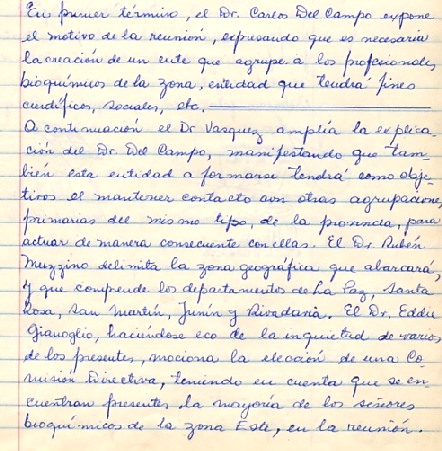 En primer término, el Dr. Carlos Del Campo expone
el motivo de la reunión, expresando que es necesaria
la creación de un ente que agrupe a los profesionales
bioquímicos de la zona, entidad que tendrá fines
científicos, sociales, etc.
A continuación el Dr Vasquez amplía la explica-
ción del Dr. Del Campo, manifestando que tam-
bién esta entidad a formarse tendrá como obje-
tivos el mantener contacto con otras agrupaciones
primarias del mismo tipo, de la provincia, para
actuar de manera consecuente con ellas. El Dr. Rubén
Muzzino delimita la zona geográfica que abarcará,
y que comprende los departamentos de La Paz, Santa
Rosa, San Martín, Junín y Rivadavia. El Dr. Eddie
Gianoglio, haciéndose eco de la inquietud de varios
de los presentes, mociona la elección de una Co-
misión Directiva, teniendo en cuenta que se en-
cuentran presentes la mayoría de los señores
bioquímicos de la zona Este, en la reunión.